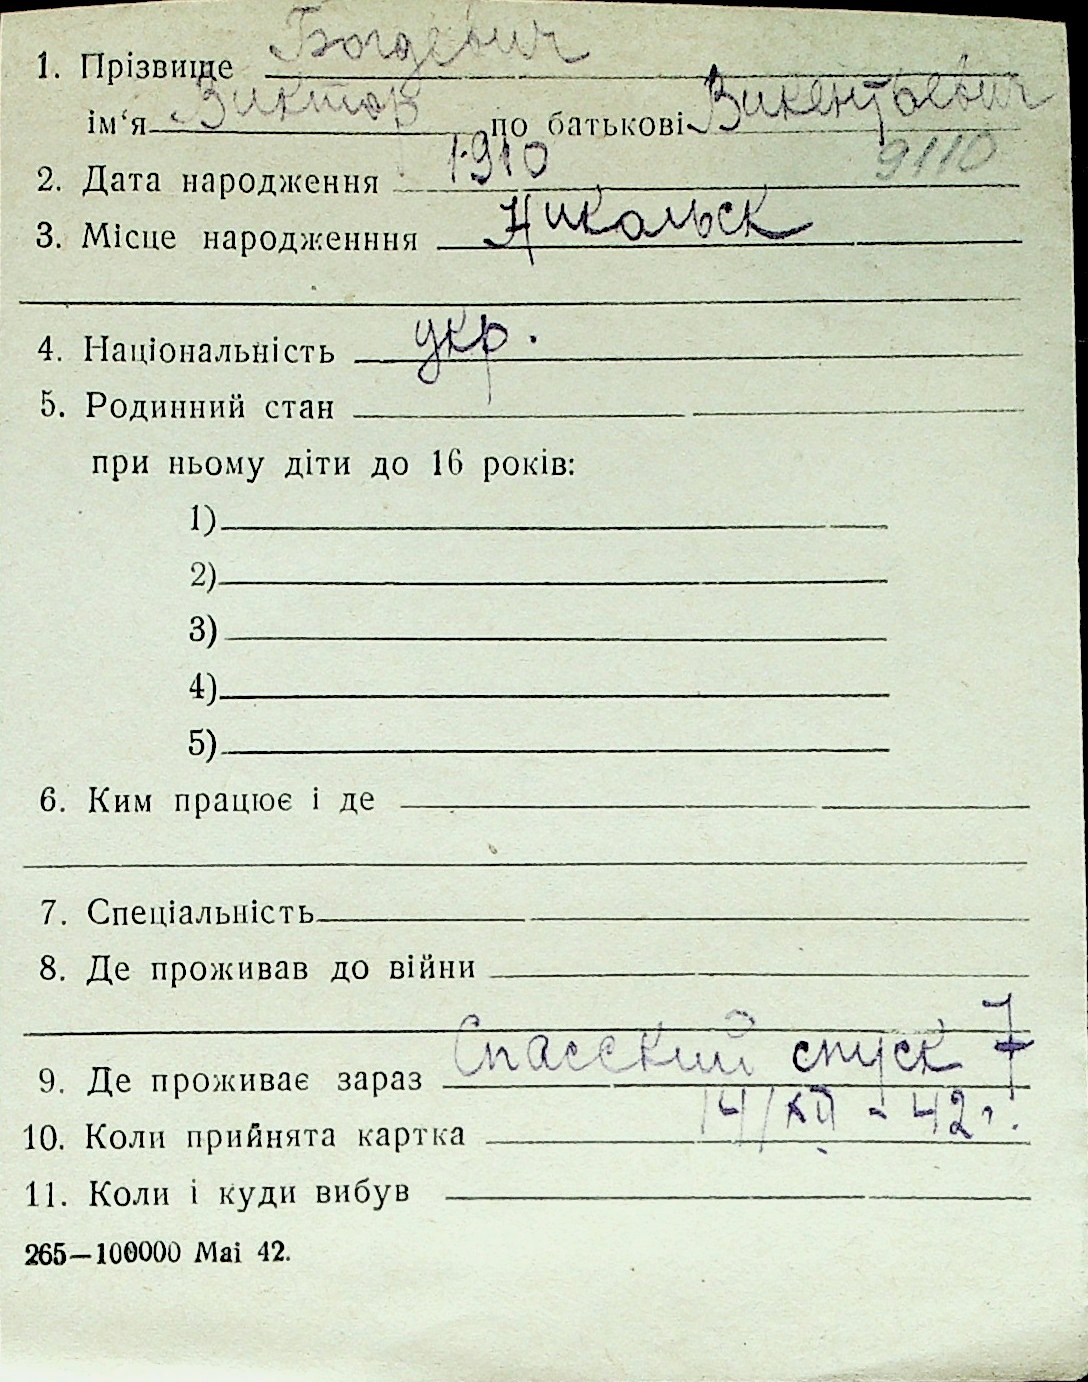 1. Прізвище Богдевич
ім‘я Виктор по батькові Викентьевич
2. Дата народження 1910 9110
3. Місце народженння Никольск
4. Національність укр.
5. Родинний стан
при ньому діти до 16 років:
1)
2)
3)
4)
5)
6. Ким працює і де
7. Спеціальність
8. Де проживав до війни
9. Де проживає зараз Спасский спуск 7
10. Коли прийнята картка 14/XII - 42 г.
11. Коли і куди вибув
265—100000 Mai 42.